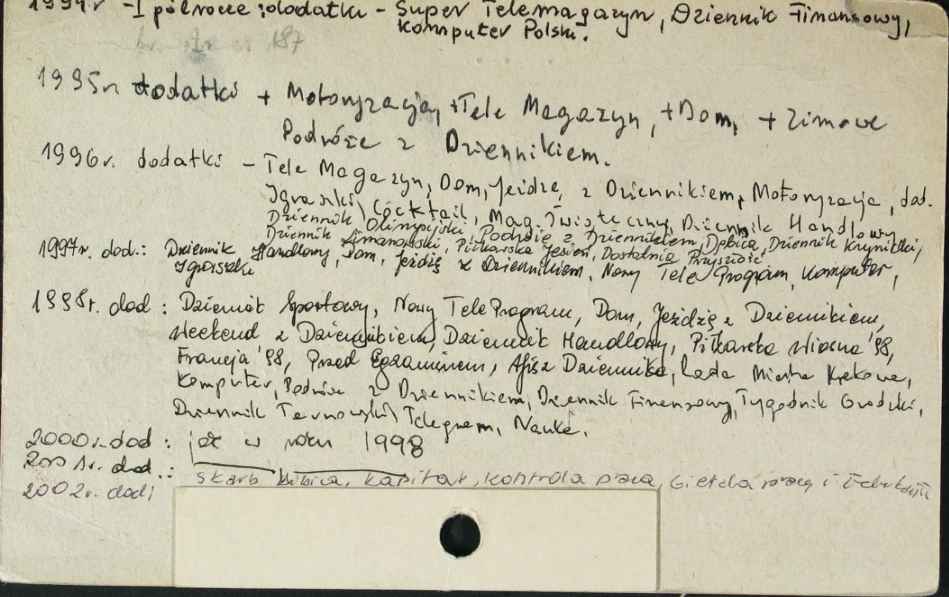 1994r -I półrocze : dodatki - Super Telemagazyn, Dziennik Finansowy,
Komputer Polski.
187
1995r dodatki + Motoryzacja, + Tele Magazyn, + Dom, + Zimowe
Podróże z Dziennikiem.
1996r. dodatki - Tele Magazyn, Dom, Jeżdżę z Dziennikiem, Motoryzacja, dod.
Igraszki, Cocktail, Mag. Świąteczny, Dziennik Handlowy
Dziennik Olimpijski, Podróże z Dziennikiem, Dębica, Dziennik Krynicki,
Dziennik Limanowski, Piłkarska Jesień, Dostatnia Przyszłość
1997r. dod.: Dziennik Handlowy, Dom, Jeżdżę z Dziennikiem, Nowy Tele Program, Komputer,
Igraszki
1998r. dod : Dziennik Sportowy, Nowy TeleProgram, Dom, Jeżdżę z Dziennikiem,
Weekend z Dziennikiem, Dziennik Handlowy, Piłkarska Wiosna '98,
Francja '98, Przed Egzaminem, Afisz Dziennika, Rada Miasta Krakowa,
Komputer, Podróże z Dziennikiem, Dziennik Finansowy, Tygodnik Grodzki,
Dziennik Tarnowski, Telegram, Nauka.
2000r. dod : jak w roku 1998
2001r. dod.:
2002r. dod: skarb kibica, kapitał, kontrola, praca, Giełda pracy i